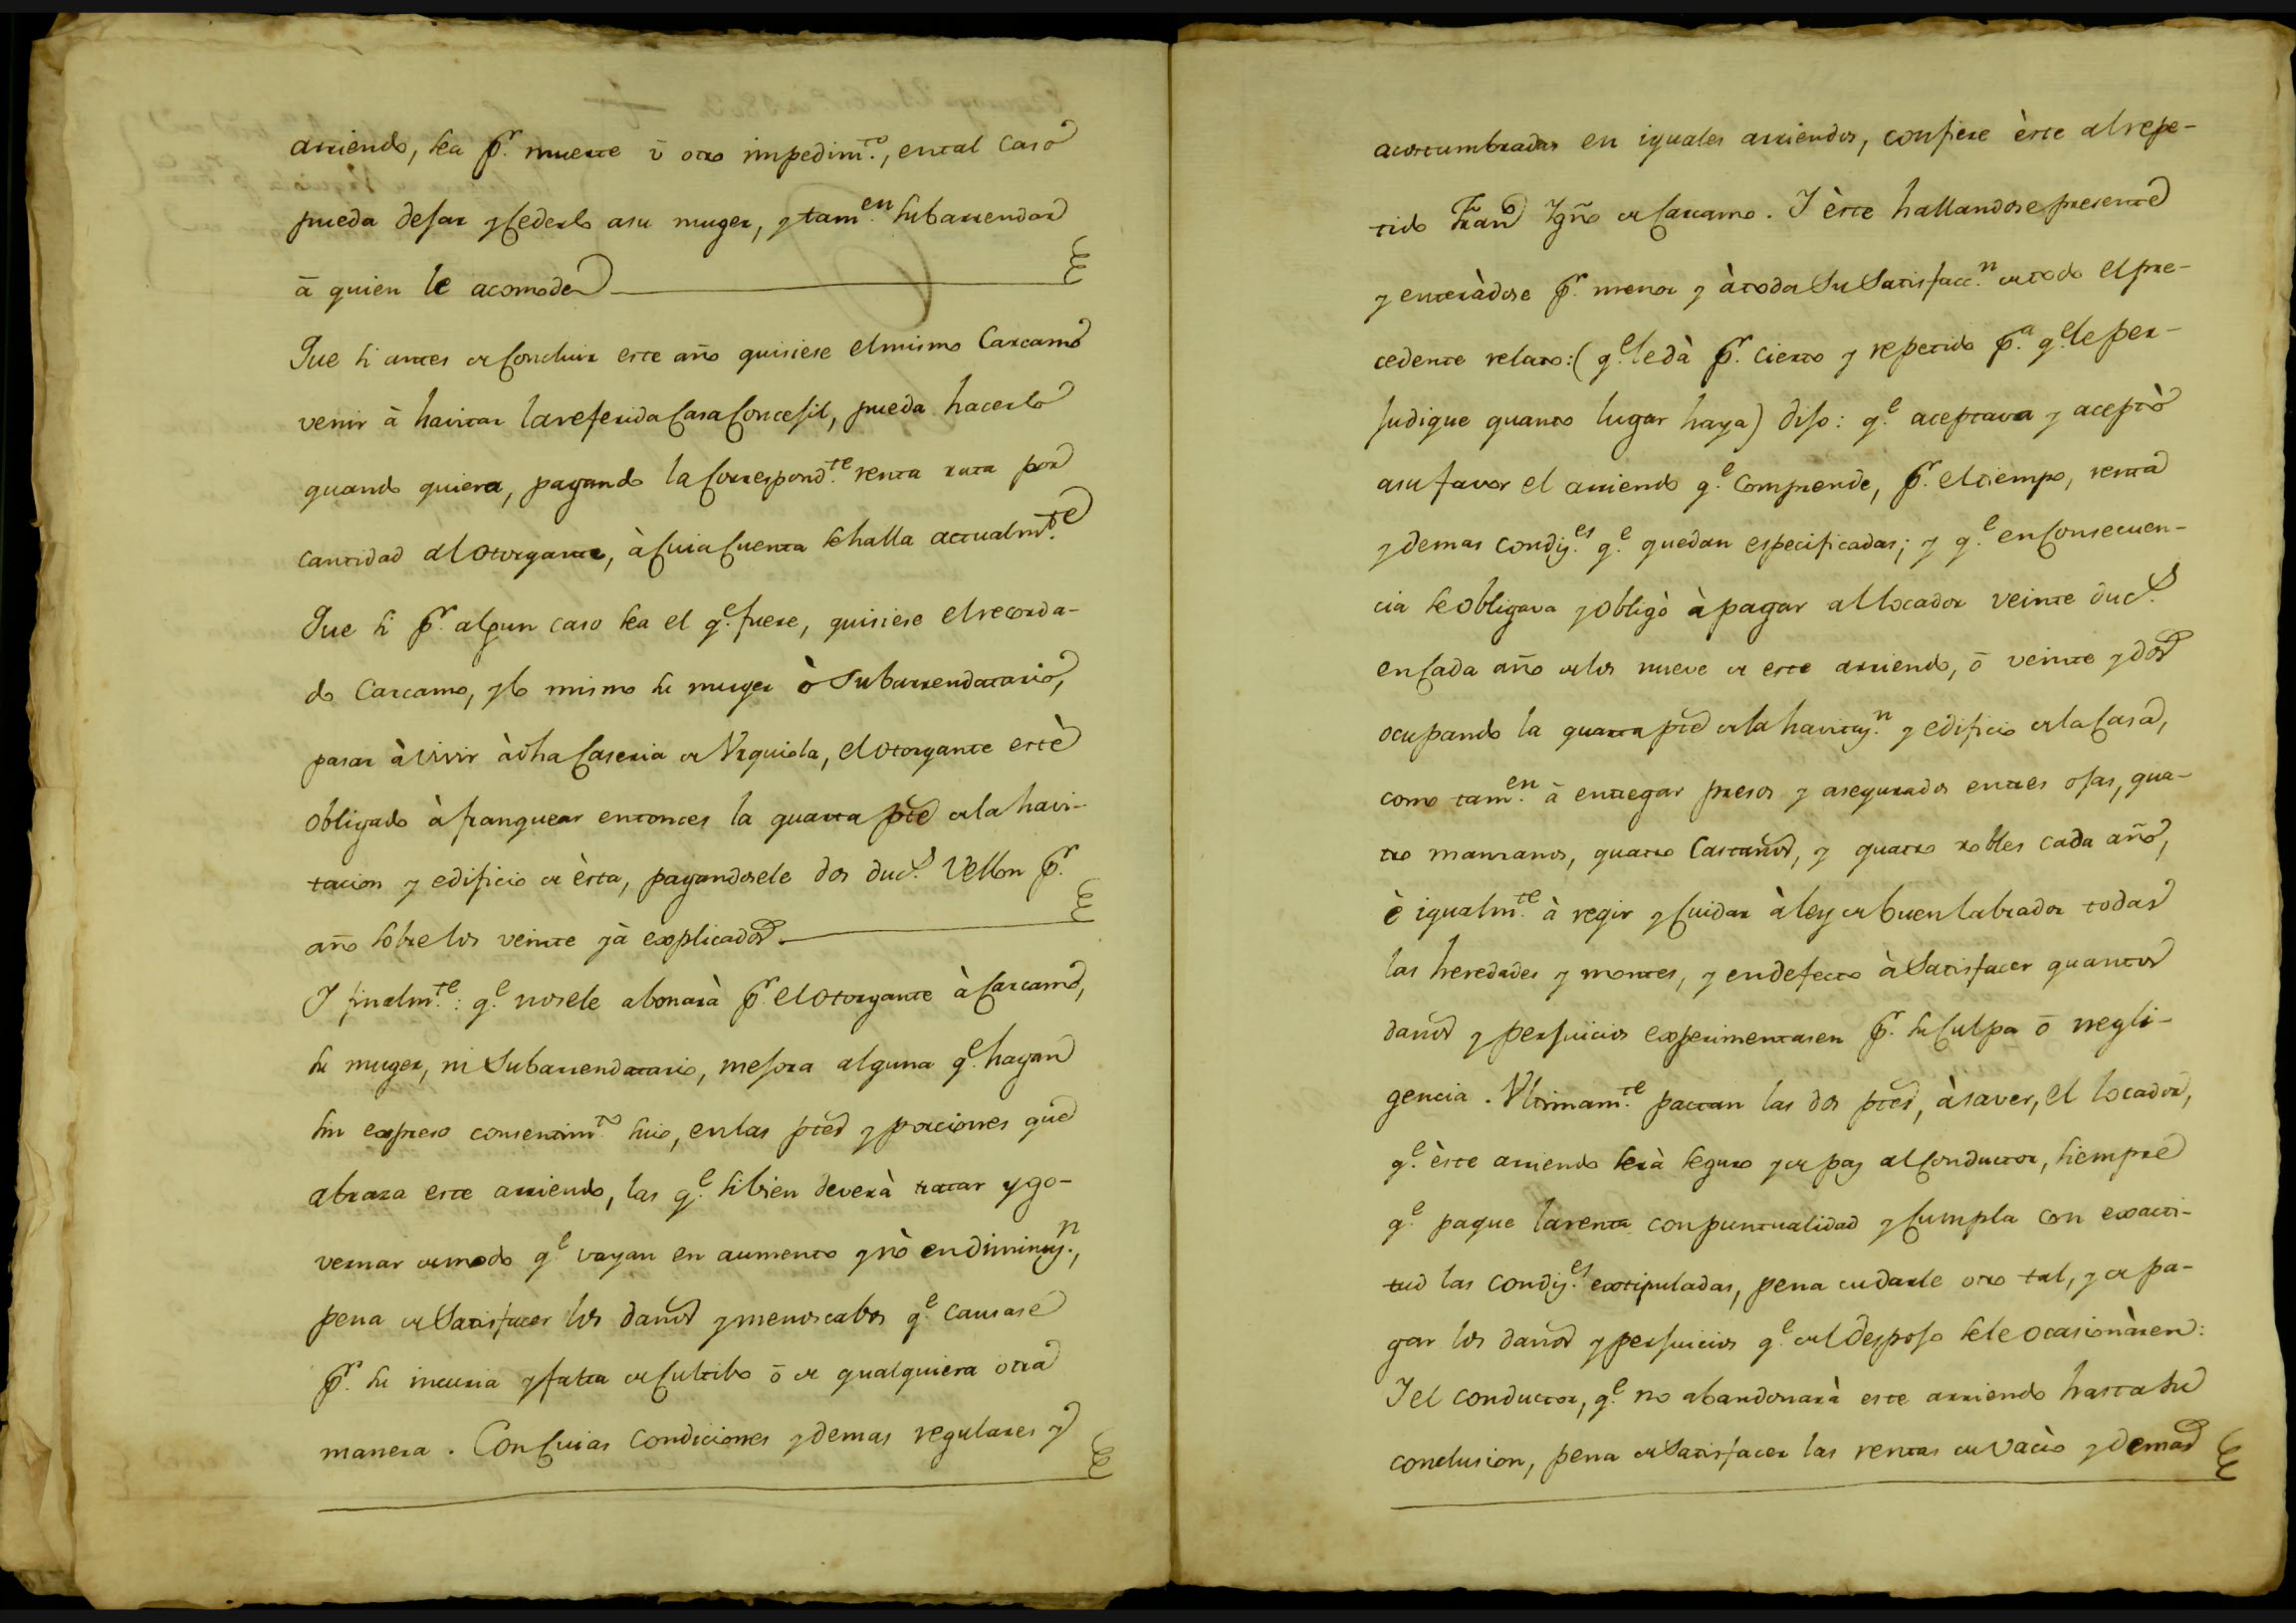 arriendo, sea pr. muerte ū otro impedim.to, ental caso
pueda dejar y Cederlo asu muger, y tam.en subarrendar
ā quien le acomode
Que si antes de Concluir este año quisiese elmismo Carcamo
venir à havitar lareferida Casa Concejil, pueda hacerlo
quando quiera, pagando la Correspond.te renta rata por
cantidad al Otorgante, à Cuia Cuenta sehalla actualm.te
Que si pr. algun caso sea el q.e fuere, quisiese elrecorda-
do Carcamo, ylo mismo su muger ò Subarrendatario,
pasar àvivir àdha Caseria de Urquiola, el Otorgante estè
obligado à franquear entonces la quarta pte dela havi-
tacion y edificio de èsta, pagandosele dos duc.s Vellon pr.
año sobre los veinte yà explicados.
I finalm.te: q.e nosele abonarà pr. el Otorgante à Carcamo,
su muger, ni Subarrendatario, mejora alguna q.e hagan
sin expreso consentim.to suio, enlas ptes y porciones que
abraza este arriendo, las q.e sibien deverà tratar ygo-
vernar demodo q.e vayan en aumento ynò endiminuy.n,
pena de Satisfacer los daños ymenoscabos q.e causare
pr. su incuria yfalta de Cultibo ō de qualquiera otra
manera. Con Cuias Condiciones ydemas regulares y
acostumbradas en iguales arriendos, confiere èste alrepe-
tido Fran.co Ygño de Carcamo. I èste hallandose presente
y enteràdose pr. menor y àtoda Su Satisfacc.n detodo elpre-
cedente relato: (q.e ledà pr. cierto y repetido p.a q.e le per-
judique quanto lugar haya) dijo: q.e aceptava y aceptò
asufavor el arriendo q.e Comprende, pr. eltiempo, renta
ydemas condiy.es q.e quedan especificadas; y q.e en Consecuen-
cia seobligava yobligò àpagar al locador veinte duc.s
en Cada año delos nueve de este arriendo, ō veinte ydos
ocupando la quarta pte dela havitay.n y edificio dela Casa,
como tam.en ā entregar presos y asegurados entres ojas, qua-
tro manzanos, quatro Castaños, y quatro robles cada año,
è igualm.te à regir y Cuidar àley de buen labrador todas
las heredades y montes, y endefecto à Satisfacer quantos
daños y perjuicios experimentasen pr. su Culpa ō negli-
gencia. Ultimam.te pactan las dos ptes, àsaver, el locador,
q.e èste arriendo serà seguro yde paz al Conductor, siempre
q.e pague larenta conpuntualidad y Cumpla con exacti-
tud las condiy.es extipuladas, pena dedarle otro tal, y de pa-
gar los daños yperjuicios q.e deldespojo sele ocasionàren:
I el conductor, q.e no abandonarà este arriendo hasta su
conclusion, pena de Satisfacer las rentas de vacìo ydemas